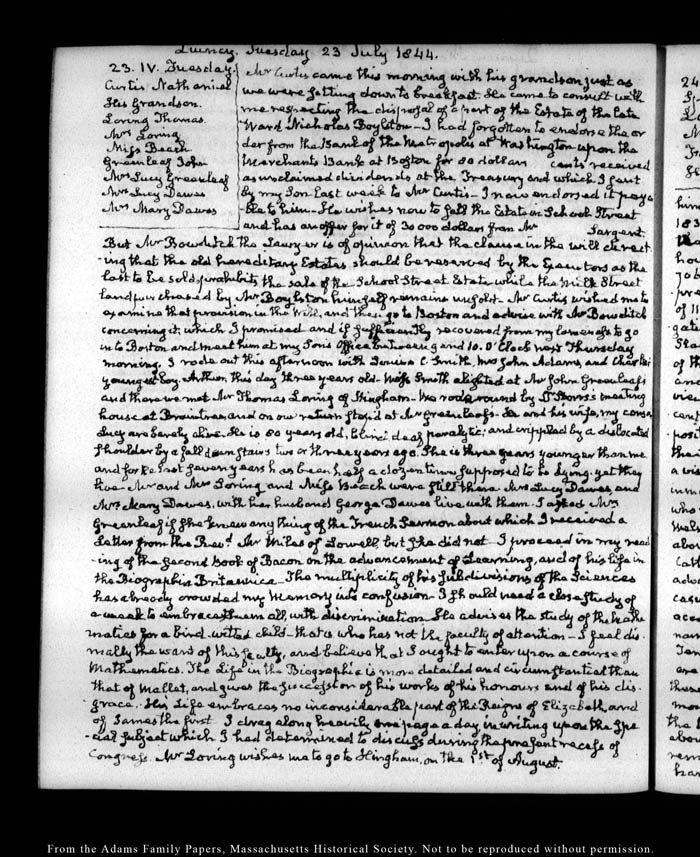 Quincy. Tuesday 23 July 1844.
23. IV. Tuesday.
Curtis Nathaniel
His Grandson.
Loring Thomas.
Mrs Loring
Miss Beach
Greenleaf John
Mrs Lucy Greenleaf
Mrs Lucy Dawes
Mrs Mary Dawes
Mr Curtis came this morning with his grandson just as
we were sitting down to breakfast. He came to consult with
me respecting the disposal of a part of the Estate of the late
Ward Nicholas Boylston — I had forgotten to endorse the or
der from the Bank of the Metropolis at Washington upon the
Merchants Bank at Boston for 80 dollars cents received
as unclaimed dividends at the Treasury and which I sent
by my Son last week to Mr Curtis — I now endorsed it paya
-ble to him — He wishes now to sell the Estate in School Street
and has an offer for it of 30 000 dollars from Mr Sargent.
But Mr Bowditch the Lawyer is of opinion that the clause in the will direct
-ing that the old hereditary Estates should be reserved by the Executors as the
last to be sold, prohibits the sale of the School Street Estate while the Milk Street
land purchased by Mr Boylston himself remains unsold. Mr Curtis wished me to
examine that provision in the Will, and then go to Boston and advise with Mr Bowditch
concerning it, which I promised and if sufficiently recovered from my lameness to go
in to Boston and meet him at my Sons Office between 9 and 10. O'Clock next Thursday
morning. I rode out this afternoon with Louisa C. Smith, Mrs John Adams, and Charles's
youngest boy. Arthur this day three years old — Miss Smith alighted at Mr John Greenleafs
and there we met Mr Thomas Loring of Hingham — We rode round by Dr Storrs's meeting
house at Braintree and on our return stop'd at Mr Greenleafs. He and his wife, my cousin
Lucy are barely alive. He is 80 years old, blind deaf paralytic; and crippled by a dislocated
shoulder by a fall down stairs two or three years ago. She is three years younger than me
and for the last seven years has been half a dozen times supposed to be dying. yet they
live Mr and Mrs Loring and Miss Beach were still there Mrs Lucy Dawes, and
Mrs Mary Dawes, with her husband George Dawes live with them. I asked Mrs
Greenleaf if she knew any thing of the French Sermon about which I received a
Letter from the Revd Mr Miles of Lowell, but she did not. I proceed in my read
-ing of the second Book of Bacon on the advancement of Learning, and of his life in
the Biographia Britannica. The multiplicity of his subdivisions of the Sciences
has already crowded my Memory into confusion. I should need a close study of
a week to embrace them all, with discrimination. He advises the study of the Mathe
matics for a bird-witted child — that is who has not the faculty of attention — I feel dis
mally the want of this faculty, and believe that I ought to enter upon a course of
Mathematics. The Life in the Biographia is more detailed and circumstantial than
that of Mallet, and gives the succession of his works of his honours and of his dis
grace. His Life embraces no inconsiderable part of the Reigns of Elizabeth, and
of James the first. I drag along heavily one page a day in writing upon the Spe
-cial subject which I had determined to discuss during the present recess of
Congress. Mr Loring wishes me to go to Hingham, on the 1st of August.
From the Adams Family Papers, Massachusetts Historical Society. Not to be reproduced without permission.